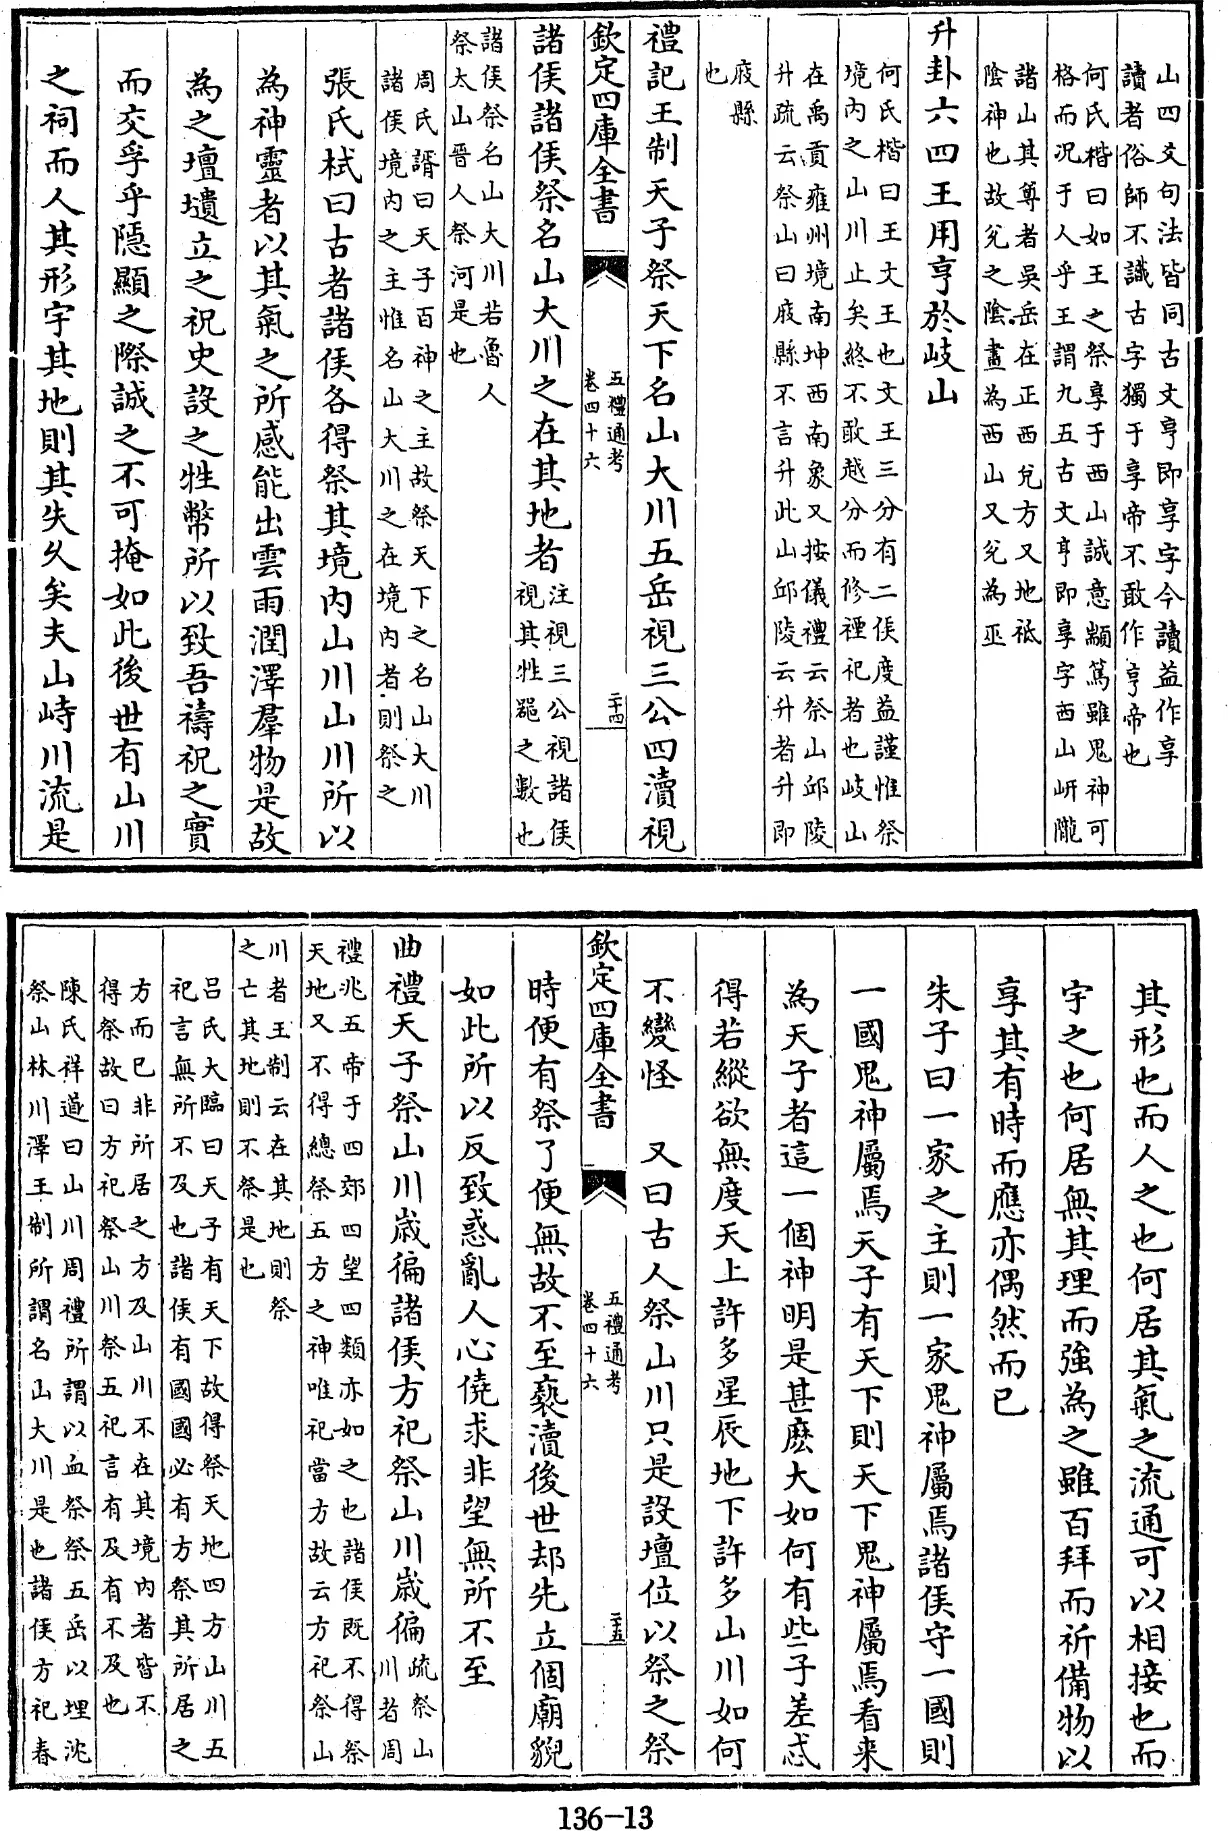 山四爻句法皆同古文亨即享字今讀益作享
讀者俗師不識古字獨于享帝不敢作亨帝也
何氏楷曰如王之祭享于西山誠意顒篤雖鬼神可
格而况于人乎王謂九五古文亨即享字西山岍隴
諸山其尊者吳岳在正西兌方又地祇
陰神也故兌之陰畫為西山又兌為巫
升卦六四王用亨於岐山
何氏楷曰王文王也文王三分有二侯度益謹惟祭
境内之山川止矣終不敢越分而修禋祀者也岐山
在禹貢雍州境南坤西南象又按儀禮云祭山邱陵
升疏云祭山曰庪縣不言升此山邱陵云升者升即
庪縣
也
禮記王制天子祭天下名山大川五岳視三公四瀆視
欽定四庫全書
五禮通考
卷四十六
二十四
諸侯諸侯祭名山大川之在其地者
注視三公視諸侯
視其牲器之數也
諸侯祭名山大川若魯人
祭太山晉人祭河是也
周氏諝曰天子百神之主故祭天下之名山大川
諸侯境内之主惟名山大川之在境内者則祭之
張氏栻曰古者諸侯各得祭其境内山川山川所以
為神靈者以其氣之所感能出雲雨潤澤羣物是故
為之壇壝立之祝史設之牲幣所以致吾禱祝之實
而交孚乎隱顯之際誠之不可掩如此後世有山川
之祠而人其形宇其地則其失久矣夫山峙川流是
其形也而人之也何居其氣之流通可以相接也而
宇之也何居無其理而強為之雖百拜而祈備物以
享其有時而應亦偶然而已
朱子曰一家之主則一家鬼神屬焉諸侯守一國則
一國鬼神屬焉天子有天下則天下鬼神屬焉看来
為天子者這一個神明是甚麽大如何有些子差忒
得若縱欲無度天上許多星辰地下許多山川如何
不變怪　又曰古人祭山川只是設壇位以祭之祭
欽定四庫全書
五禮通考
卷四十六
二十五
時便有祭了便無故不至褻瀆後世却先立個廟貌
如此所以反致惑亂人心僥求非望無所不至
曲禮天子祭山川歲徧諸侯方祀祭山川歲徧
疏祭山
川者周
禮兆五帝于四郊四望四類亦如之也諸侯既不得祭
天地又不得總祭五方之神唯祀當方故云方祀祭山
川者王制云在其地則祭
之亡其地則不祭是也
吕氏大臨曰天子有天下故得祭天地四方山川五
祀言無所不及也諸侯有國國必有方祭其所居之
方而已非所居之方及山川不在其境内者皆不
得祭故曰方祀祭山川祭五祀言有及有不及也
陳氏祥道曰山川周禮所謂以血祭祭五岳以埋沈
祭山林川澤王制所謂名山大川是也諸侯方祀春
136-13